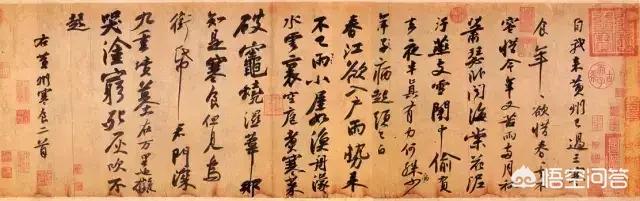 自我來黃州已過三寒
食年年欲惜春春去不
容惜今年又苦雨兩月秋
蕭瑟卧聞海棠花泥
汙燕支雪闇中偷負
去夜半真有力何殊少
年子病起頭已白
春江欲入戶雨勢來
不已雨小屋如漁舟濛濛
水雲裏空庖煮寒菜
破竈燒濕葦那
知是寒食但見烏
銜帋君門深
九重墳墓在万里也擬
哭塗窮死灰吹不
起
右黃州寒食二首
悟空问答